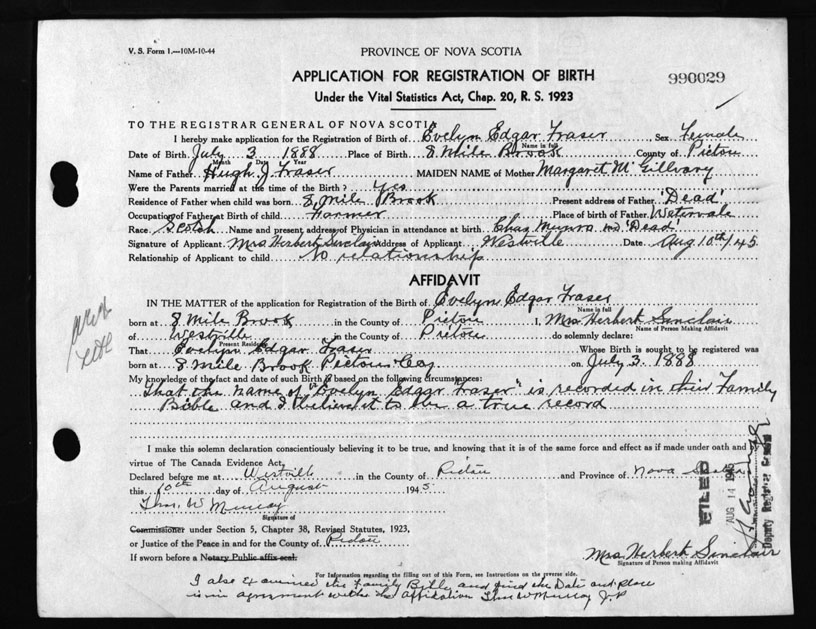 V. S. Form 1.—10M-10-44
PROVINCE OF NOVA SCOTIA
APPLICATION FOR REGISTRATION OF BIRTH
990029
Under the Vital Statistics Act, Chap. 20, R. S. 1923
TO THE REGISTRAR GENERAL OF NOVA SCOTIA
I hereby make application for the Registration of Birth of Evelyn Edgar Fraser Sex Female
Name in full
Date of Birth July 3 1888 Place of Birth 8 Mile Brook County of Pictou
Month Day Year
Name of Father Hugh J Fraser MAIDEN NAME of Mother Margaret McGillvary
Were the Parents married at the time of the Birth? Yes
Residence of Father when child was born 8 Mile Brook Present address of Father 'Dead'
Occupation of Father at Birth of child Farmer Place of birth of Father Watervale
Race Scotch Name and present address of Physician in attendance at birth Chas Munro MD 'Dead'
Signature of Applicant Mrs Herbert Sinclair Address of Applicant Westville Date Aug 10th/45
Relationship of Applicant to child No relationship
AFFIDAVIT
IN THE MATTER of the application for Registration of the Birth of Evelyn Edgar Fraser
Name in full
born at 8 Mile Brook in the County of Pictou I, Mrs Herbert Sinclair
Name of Person Making Affidavit
of Westville in the County of Pictou do solemnly declare:
Present Residence
That Evelyn Edgar Fraser Whose Birth is sought to be registered was
born at 8 Mile Brook Pictou Coy on July 3. 1888
My knowledge of the fact and date of such Birth is based on the following circumstances:
That the name of "Evelyn Edgar Fraser" is recorded in their Family
Bible and I believe it to be a true record
I make this solemn declaration conscientiously believing it to be true, and knowing that it is of the same force and effect as if made under oath and by
virtue of The Canada Evidence Act,
Declared before me at Westville in the County of Pictou and Province of Nova Scotia
this 10th day of August 1945
Thos. W Murray
Signature of
Commissioner under Section 5, Chapter 38, Revised Statutes, 1923,
or Justice of the Peace in and for the County of Pictou
If sworn before a Notary Public affix seal.
Mrs. Herbert Sinclair
Signature of Person making Affidavit
For Information regarding the filling out of this Form, see Instructions on the reverse side.
I also examined the Family Bible and find the Date and place
is in agreement with the affidavit Thos W Murray J.P
FILED
AUG 14
Deputy Registrar General